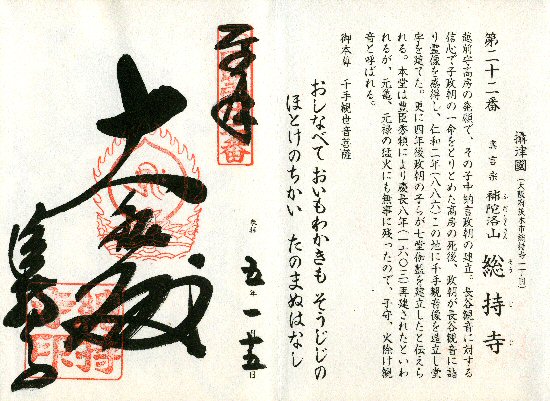 攝津國(大阪府茨木市総持寺一丁目)
第二十二番 真言宗 補陀洛山 総持寺
ふだらくさん そうじじ
越前守高房の発願で、その子中納言政朝の建立。長谷観音に対する
信心で子政朝の一命をとりとめた高房の死後、政朝が長谷観音に詣
り霊像を感得し、仁和二年(八八六)この地に千手観音像を造立し堂
宇を建てた。更に四年後政朝の子らが七堂伽藍を建立したと伝えら
れる。本堂は豊臣秀頼により慶長八年(一六〇三)再建されたといわ
れるが、元亀、元禄の猛火にも無事に残ったので、子守、火除け観
音と呼ばれる。
御本尊 千手観世音菩薩
おしなべて おいもわかきも そうじじの
ほとけのちかい たのまぬはなし
奉拝
五年一月十五日
大悲殿
総持寺